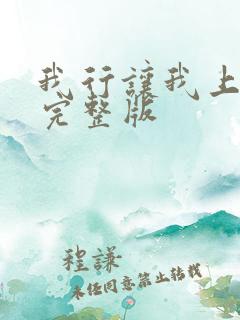 我行讓我上
完整版
程謙
未经同意禁止转载